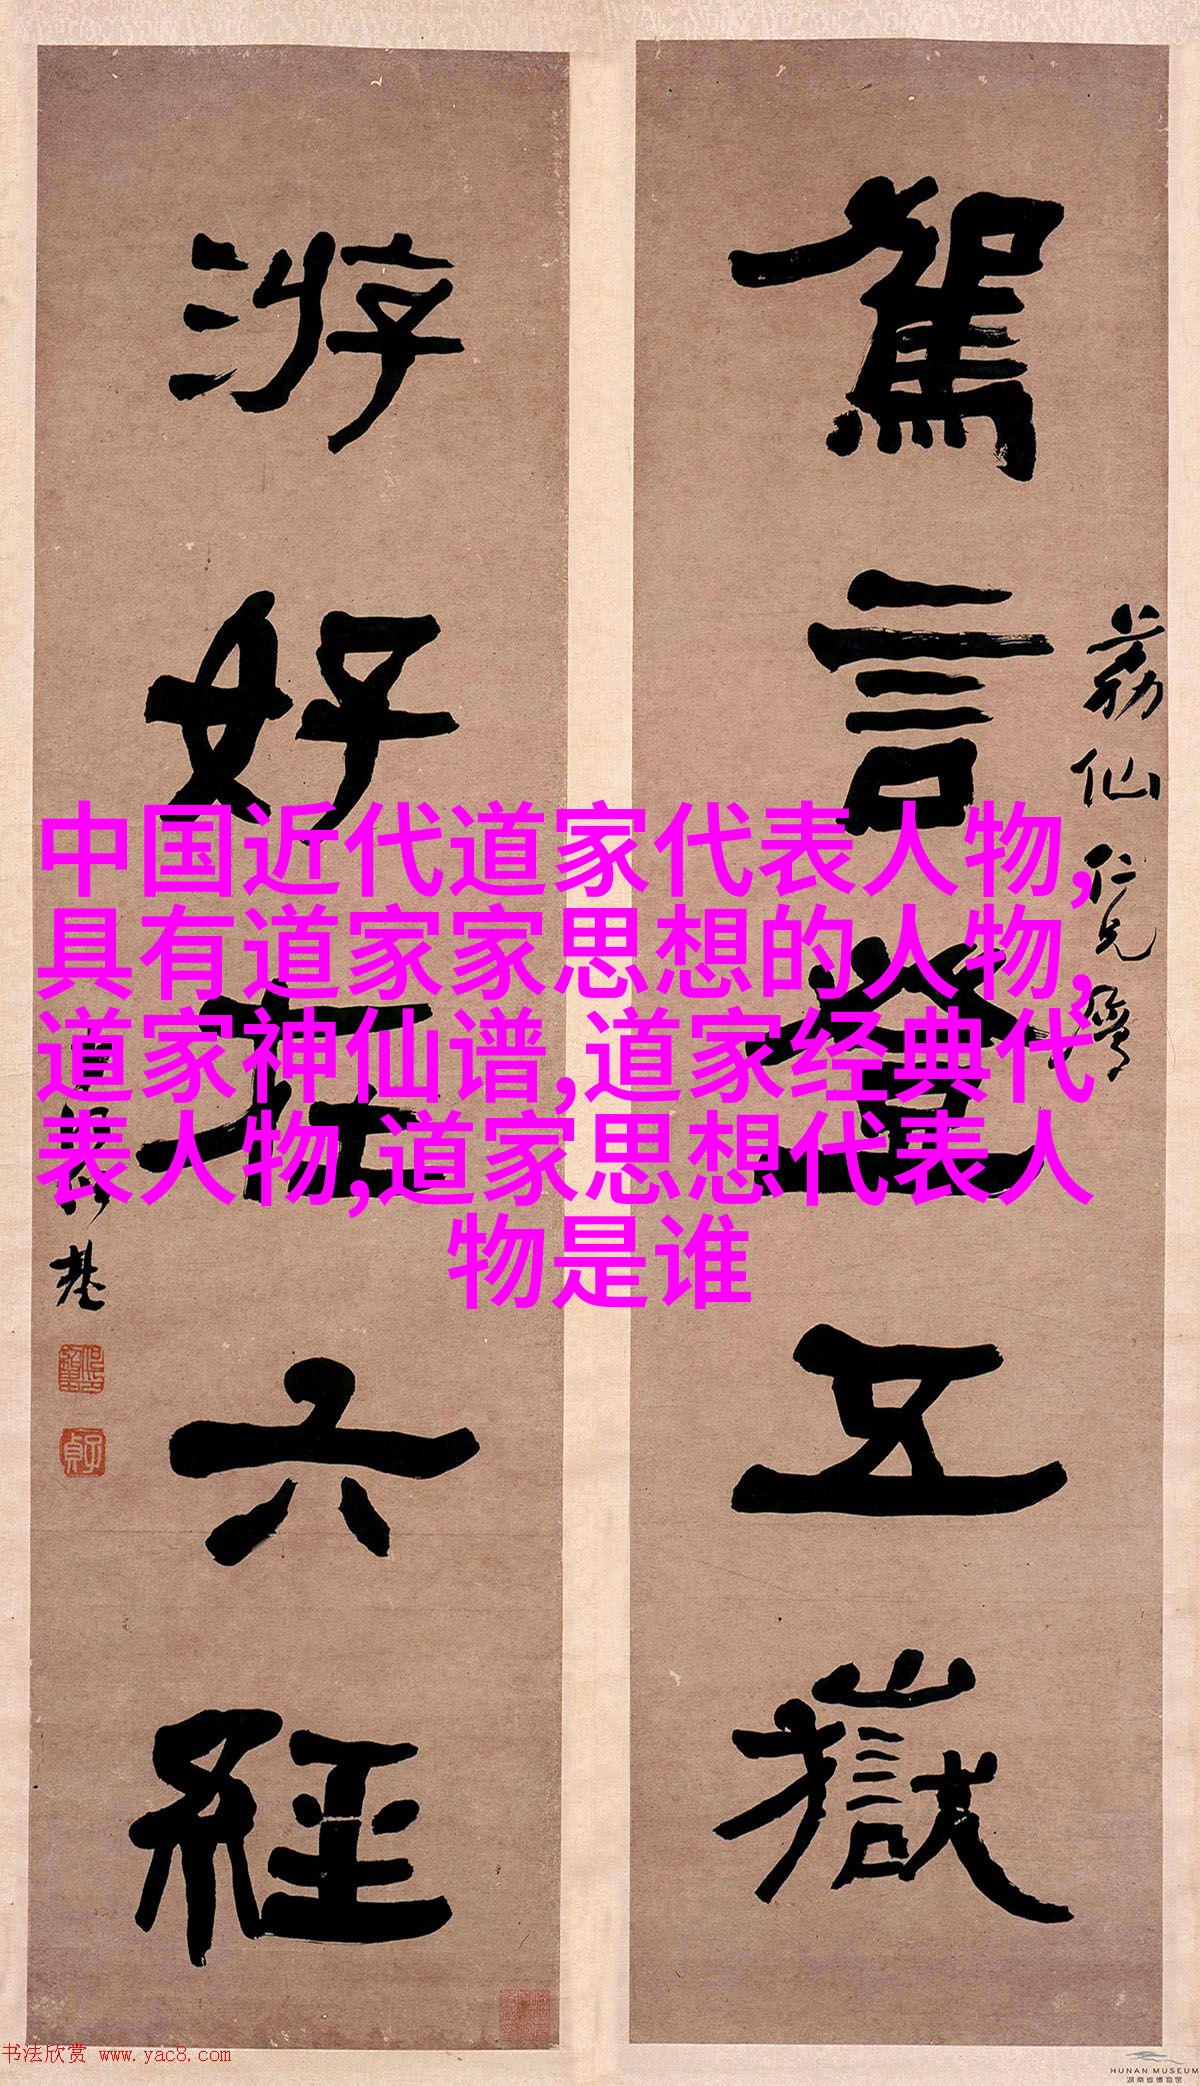 駕言登五嶽
荔仙仁兄属
游好在六經
何紹基
子貞
中国近代道家代表人物,
具有道家家思想的人物,
道家神仙谱,道家经典代
表人物,道家思想代表人
物是谁
书法欣赏 www.yac8.com
HUNAN MUSEUM
湖南省博物馆